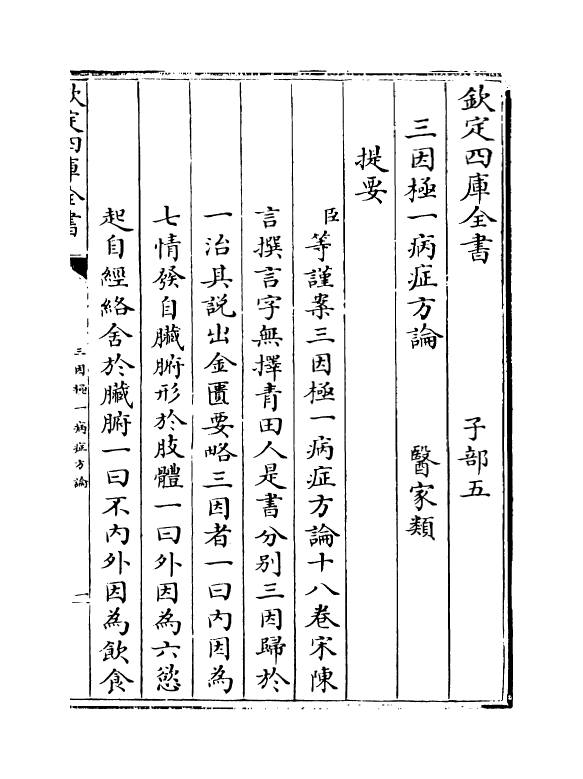 欽定四庫全書 子部五
三因極一病症方論 醫家類
提要
臣等謹案三因極一病症方論十八卷宋陳
言撰言字無擇青田人是書分别三因歸於
一治其説出金匱要略三因者一曰内因為
七情發自臟腑形於肢體一曰外因為六慾
起自經絡舍於臟腑一曰不内外因為飲食
欽定四庫全書 三因極一病症方論 一